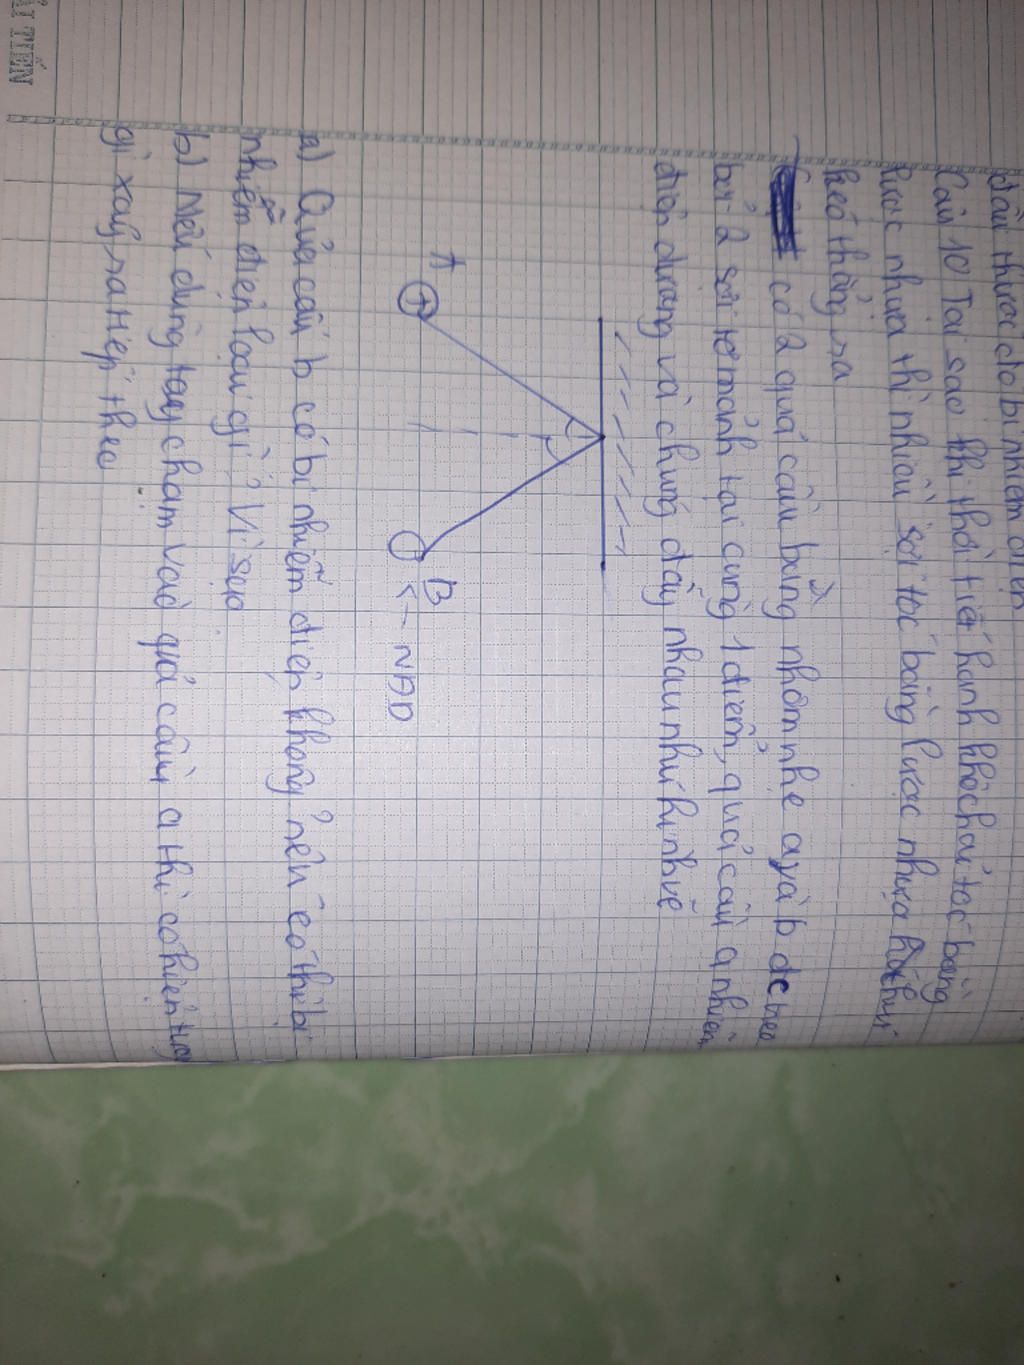 đầu thước do bị nhiễm điện
Câu 10 Tại sao khi thời tiết hanh khô chải tóc bằng
lược nhựa thì nhiều sợi tóc bằng lược nhựa hút
kéo thẳng ra
có 2 quả cầu bằng nhôm nhẹ a và b dc treo
bởi 2 sợi tơ mảnh tại cùng 1 điểm, quả cầu a nhiễm
điện dương và chúng đẩy nhau như hình vẽ
A
+
B
← NAD
a) Quả cầu b có bị nhiễm điện không? nếu có thì bị
nhiễm điện loại gì? Vì sao
b) Nếu dùng tay chạm vào quả cầu a thì có hiện tg
gì xảy ra tiếp theo